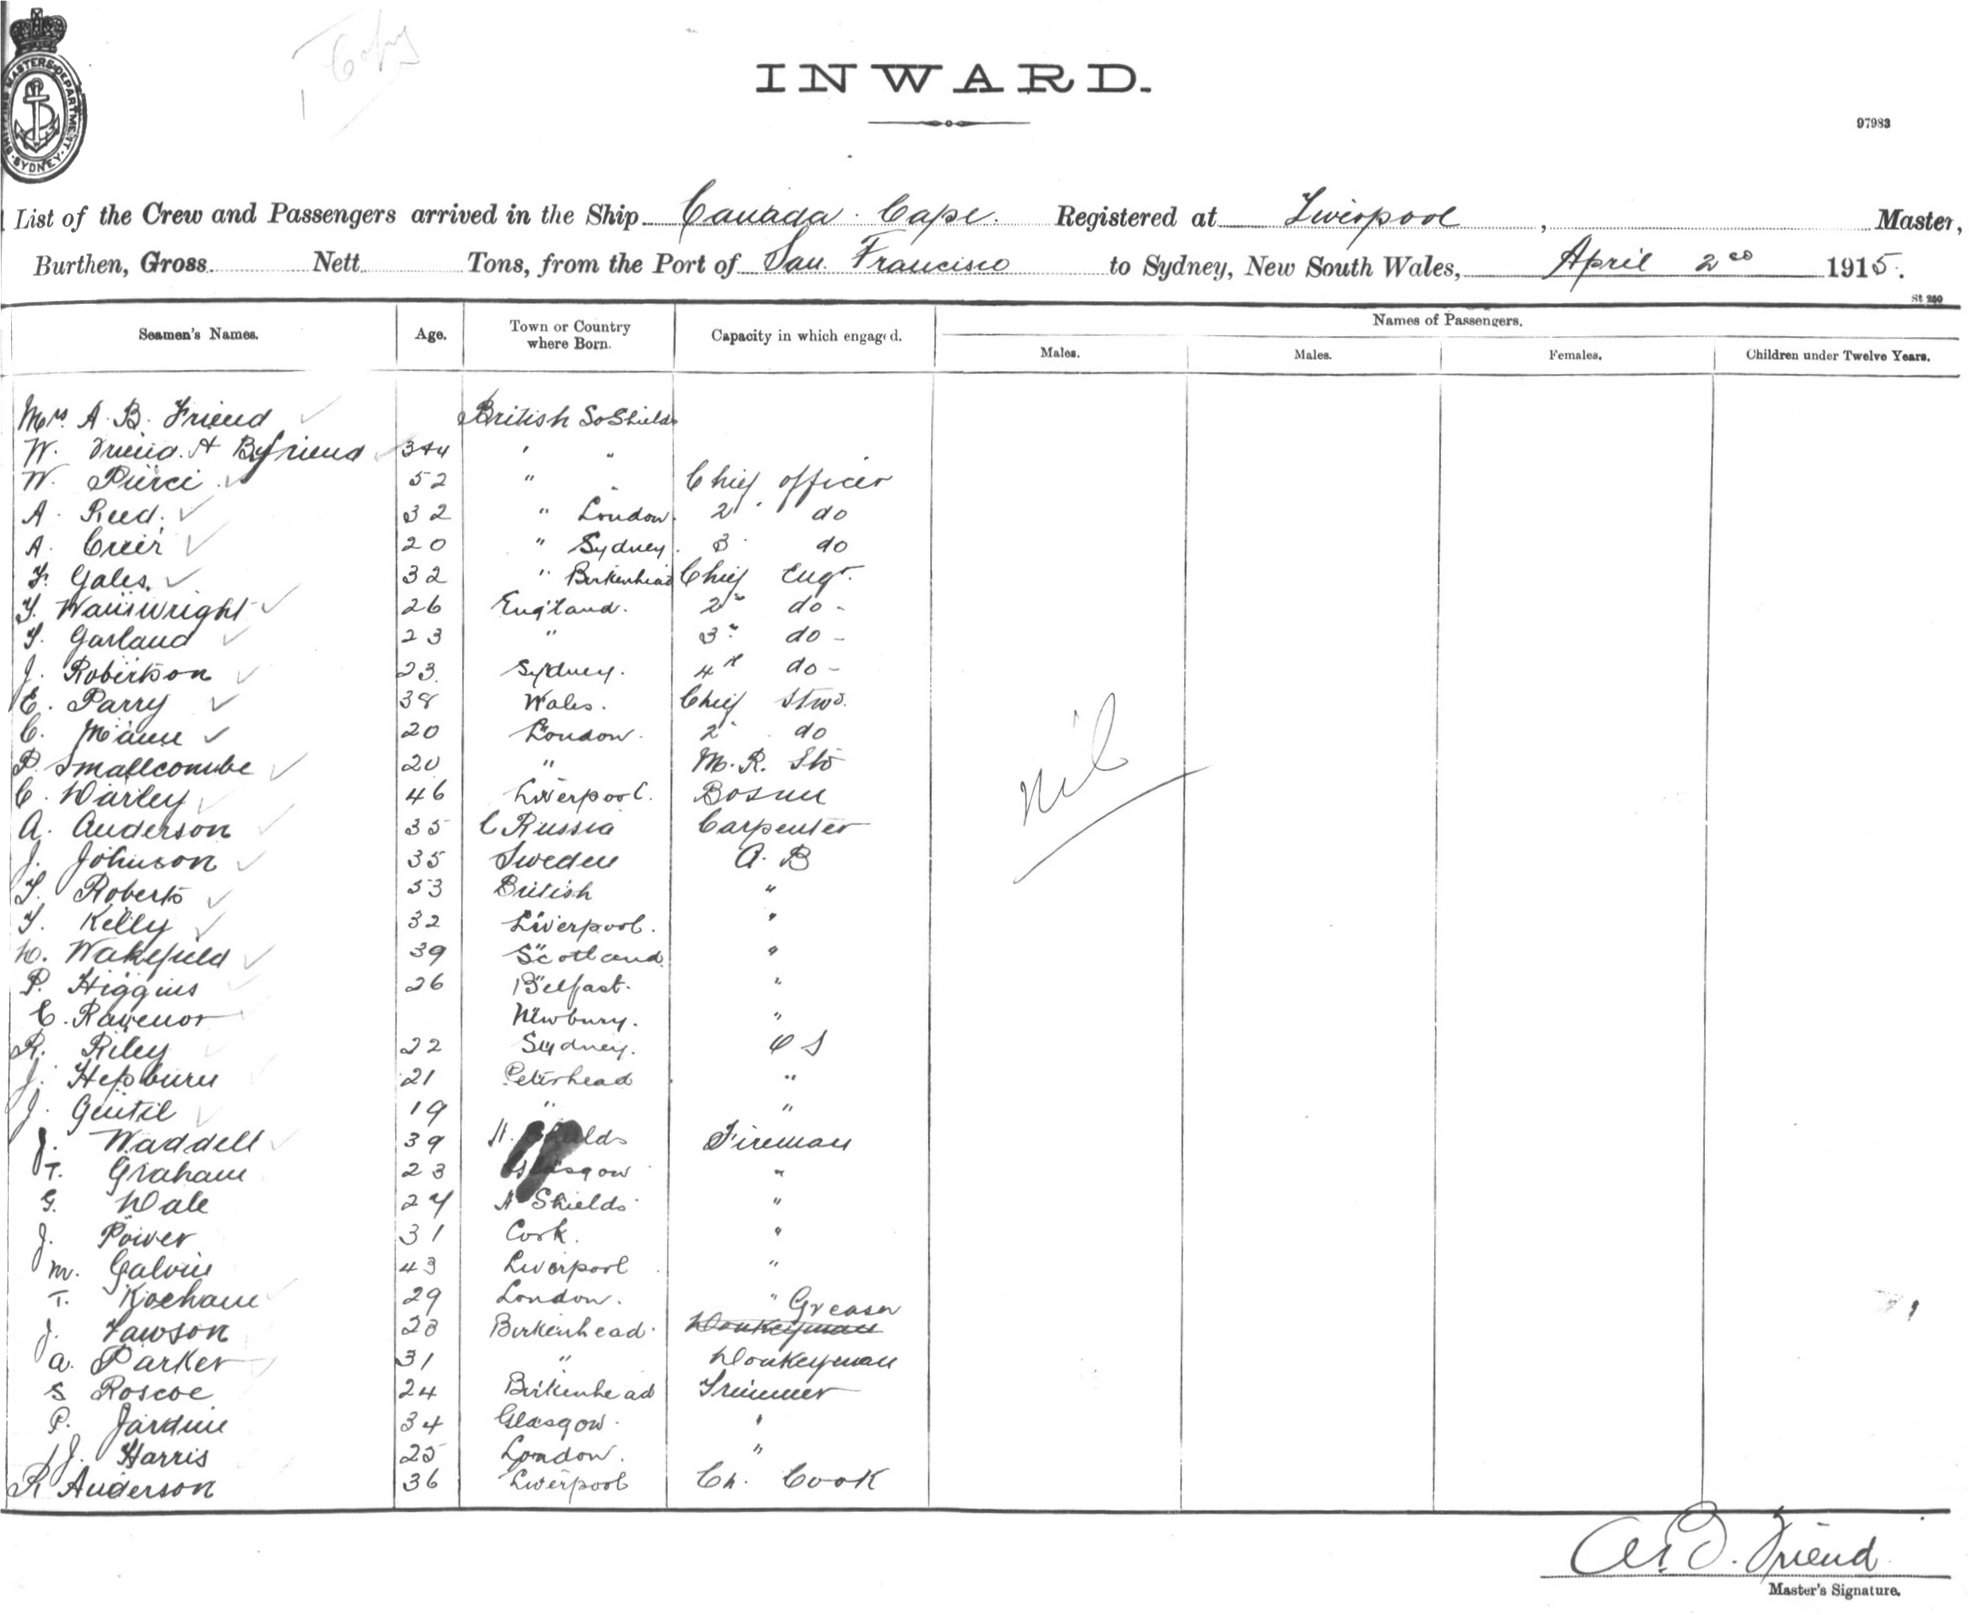 Copy
INWARD.
97983
SHIPPING MASTERS DEPARTMENT SYDNEY
List of the Crew and Passengers arrived in the Ship Canada Cape. Registered at Liverpool, Master,
Burthen, Gross Nett Tons, from the Port of San Francisco to Sydney, New South Wales, April 2nd 1915.
St 250
Seamen's Names. Age. Town or Country where Born. Capacity in which engaged. Names of Passengers.
Males. Males. Females. Children under Twelve Years.
Mrs A. B. Friend British So Shields
W. Friend. A B Friend " "
W. Pierci 52 " " Chief Officer
A. Reed. 32 " London. 2 do
A. Creer 20 " Sydney. 3 do
F. Gales. 32 " Birkenhead Chief Engr.
T. Wainwright 26 England. 2nd do -
T. Garland 23 " 3rd do -
J. Robertson 23. Sydney. 4th do -
E. Parry 38 Wales. Chief Stwd.
C. Mann 20 London. 2 do
P. Smallcombe 20 " M. R. Std
C. Warley 46 Liverpool. Bosun
A. Anderson 35 Russia Carpenter
J. Johnson 35 Sweden A. B
T. Roberts 53 British "
T. Kelly 32 Liverpool. "
D. Wakefield 39 Scotland "
P. Higgins 26 Belfast. "
C. Ravenor Newbury. "
R. Riley 22 Sydney. O S
J. Hepburn 21 Peterhead "
J. Gentil 19 " "
J. Waddell 39 Shields Fireman
T. Graham 23 Glasgow "
G. Dale 27 N Shields "
J. Power 31 Cork. "
M. Galvin 43 Liverpool "
T. 29 London. "
J. Lawson 28 Birkenhead. Donkeyman Greaser
A. Parker 31 " Donkeyman
S Roscoe 24 Birkenhead Trimmer
P. Jardine 34 Glasgow. "
J. Harris 25 London. "
R Anderson 36 Liverpool Ch. Cook
Nil
Friend
Master's Signature.